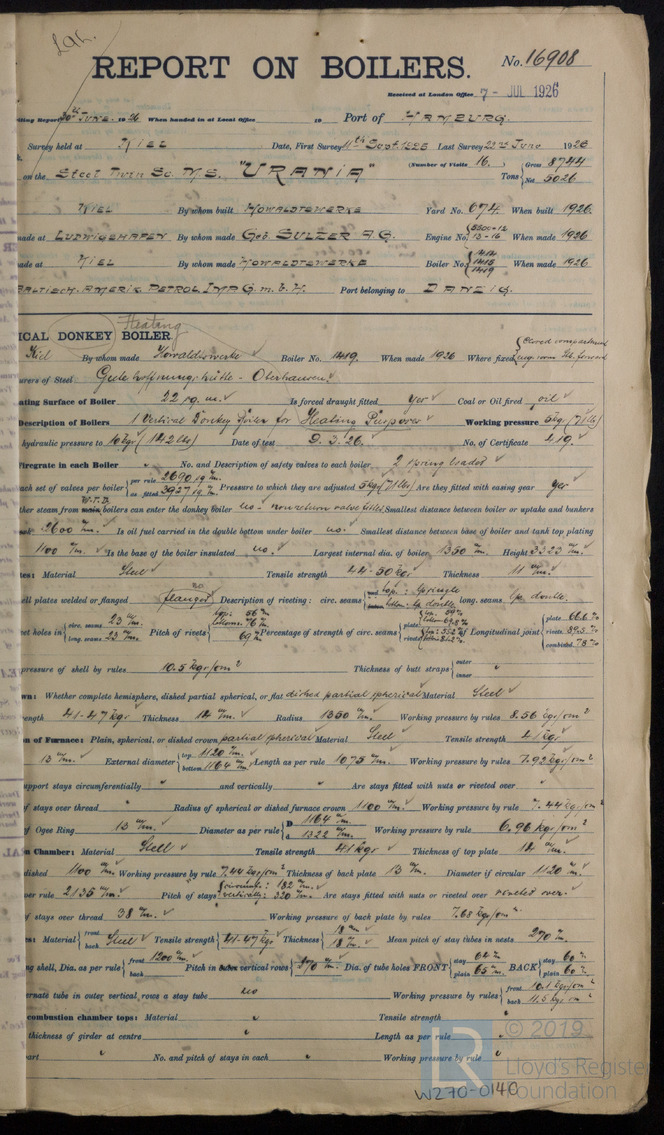 REPORT ON BOILERS. No. 16908
Received at London Office 7 - JUL 1926
iting Report 30th June, 1926 When handed in at Local Office 19 Port of HAMBURG.
Survey held at KIEL Date, First Survey 11th Sept. 1925 Last Survey 22nd June 1926
on the Steel Twin Sc. M.S. "URANIA" (Number of Visits 16.) Tons { Gross 8744 Net 5026
KIEL By whom built HOWALDTSWERKE Yard No. 674. When built 1926.
made at LUDWIGSHAFEN By whom made Geb. SULZER A.G. Engine No. When made 1926
ade at KIEL By whom made HOWALDTSWERKE Boiler No. 1419 When made 1926.
BALTISCH. AMERIK. PETROL. IMP. G.m.b.H. Port belonging to DANZIG.
ICAL DONKEY Heating BOILER
Kiel By whom made Howaldtswerke Boiler No. 1419. When made 1926 Where fixed
urers of Steel Gutehoffnungshütte - Oberhausen.
ating Surface of Boiler 22 sq. m. Is forced draught fitted yes Coal or Oil fired oil
Description of Boilers 1 Vertical Donkey Boiler for Heating Purposes Working pressure 5kg (71 lbs)
hydraulic pressure to 10 kgs (142 lbs) Date of test 9. 3. 26. No. of Certificate 419.
Firegrate in each Boiler " No. and Description of safety valves to each boiler 2 spring loaded
ach set of valves per boiler { per rule 2690 as fitted 3927 Pressure to which they are adjusted 5kg (71 lbs) Are they fitted with easing gear yes
ther steam from main W.T.B. boilers can enter the donkey boiler no - nonreturn valve fitted Smallest distance between boiler or uptake and bunkers
2600 m/m. Is oil fuel carried in the double bottom under boiler no. Smallest distance between base of boiler and tank top plating
1100 m/m. Is the base of the boiler insulated no. Largest internal dia. of boiler 1350 m/m. Height 3323 m/m
tes: Material Steel Tensile strength 44-50 kgs Thickness 11 m/m.
ell plates welded or flanged flanged Description of riveting: circ. seams top: single bottom: lap double long. seams lap double.
vet holes in { circ. seams 23 m/m. long. seams 23 m/m. Pitch of rivets { top: 56 m/m bottom: 76 m/m 69 m/m Percentage of strength of circ. seams { plate rivets of Longitudinal joint { plate 66.6% rivets combined 78%
pressure of shell by rules 10.5 kgs/cm² Thickness of butt straps { outer inner "
wn: Whether complete hemisphere, dished partial spherical, or flat dished partial spherical Material Steel
ength 41-47 kgs Thickness 14 m/m. Radius 1350 m/m. Working pressure by rules 8.56 kgs/cm²
on of Furnace: Plain, spherical, or dished crown partial spherical Material Steel Tensile strength 41 kg.
13 m/m. External diameter { top 1120 m/m. bottom 1164 m/m. Length as per rule 1075 m/m. Working pressure by rules 7.92 kgs/cm²
upport stays circumferentially " and vertically " Are stays fitted with nuts or riveted over "
of stays over thread " Radius of spherical or dished furnace crown 1100 m/m Working pressure by rule 7.44 kgs/cm²
of Ogee Ring 13 m/m. Diameter as per rule { D 1164 m/m d 1322 m/m. Working pressure by rule 6.96 kgs/cm²
n Chamber: Material Steel Tensile strength 41 kgs Thickness of top plate 14 m/m.
dished 1100 m/m Working pressure by rule 7.44 kgs/cm² Thickness of back plate 13 m/m. Diameter if circular 1120 m/m.
per rule 2135 m/m. Pitch of stays { circumf.: 182 m/m. vertically: 320 m/m. Are stays fitted with nuts or riveted over riveted over.
of stays over thread 38 m/m. Working pressure of back plate by rules 7.68 kgs/cm²
es: Material { front back Steel Tensile strength { 41-47 kgs Thickness { 18 m/m 18 m/m. Mean pitch of stay tubes in nests 270 m/m.
ng shell, Dia. as per rule { front 1200 m/m. back Pitch in outer vertical rows Dia. of tube holes FRONT { stay plain 65 m/m. BACK { stay 60 m/m plain 60 m/m.
ernate tube in outer vertical rows a stay tube no Working pressure by rules { front 10.1 kgs/cm back 11.5 kgs cm
combustion chamber tops: Material " Tensile strength "
thickness of girder at centre " Length as per rule "
part " No. and pitch of stays in each " Working pressure by rule "
LR © 2019
Lloyd's Register
Foundation
W270-0140